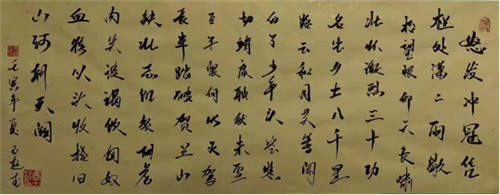 怒发冲冠凭
栏处潇潇雨歇
抬望眼仰天长啸
壮怀激烈三十功
名尘与土八千里
路云和月莫等闲
白了少年头空悲
切靖康耻犹未雪
臣子恨何时灭驾
长车踏破贺兰山
缺壮志饥餐胡虏
肉笑谈渴饮匈奴
血待从头收拾旧
山河朝天阙
壬寅年夏